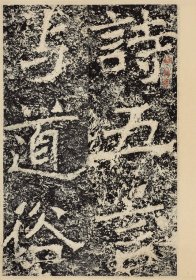 詩五言
与道俗